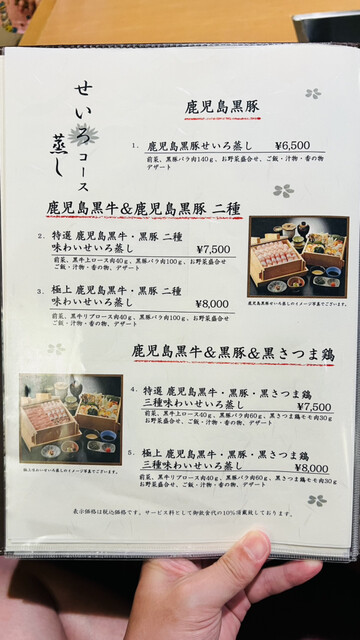 せいろ蒸しコース
鹿児島黒豚
1. 鹿児島黒豚せいろ蒸し ¥6,500
前菜、黒豚バラ肉140g、お野菜盛合せ、ご飯・汁物・香の物
デザート
鹿児島黒牛&鹿児島黒豚 二種
2. 特選 鹿児島黒牛・黒豚 二種
味わいせいろ蒸し ¥7,500
前菜、黒牛上ロース肉40g、黒豚バラ肉100g、お野菜盛合せ
ご飯・汁物・香の物、デザート
3. 極上 鹿児島黒牛・黒豚 二種
味わいせいろ蒸し ¥8,000
前菜、黒牛リブロース肉40g、黒豚バラ肉100g、お野菜盛合せ
ご飯・汁物・香の物、デザート
鹿児島黒豚せいろ蒸しのイメージ写真でございます。
鹿児島黒牛&黒豚&黒さつま鶏
4. 特選 鹿児島黒牛・黒豚・黒さつま鶏
三種味わいせいろ蒸し ¥7,500
前菜、黒牛上ロース40g、黒豚バラ肉60g、黒さつま鶏モモ肉30g
お野菜盛合せ、ご飯・汁物・香の物、デザート
5. 極上 鹿児島黒牛・黒豚・黒さつま鶏
三種味わいせいろ蒸し ¥8,000
前菜、黒牛リブロース肉40g、黒豚バラ肉60g、黒さつま鶏モモ肉30g
お野菜盛合せ、ご飯・汁物・香の物、デザート
表示価格は税込価格です。サービス料として御飲食代の10%頂戴致しております。